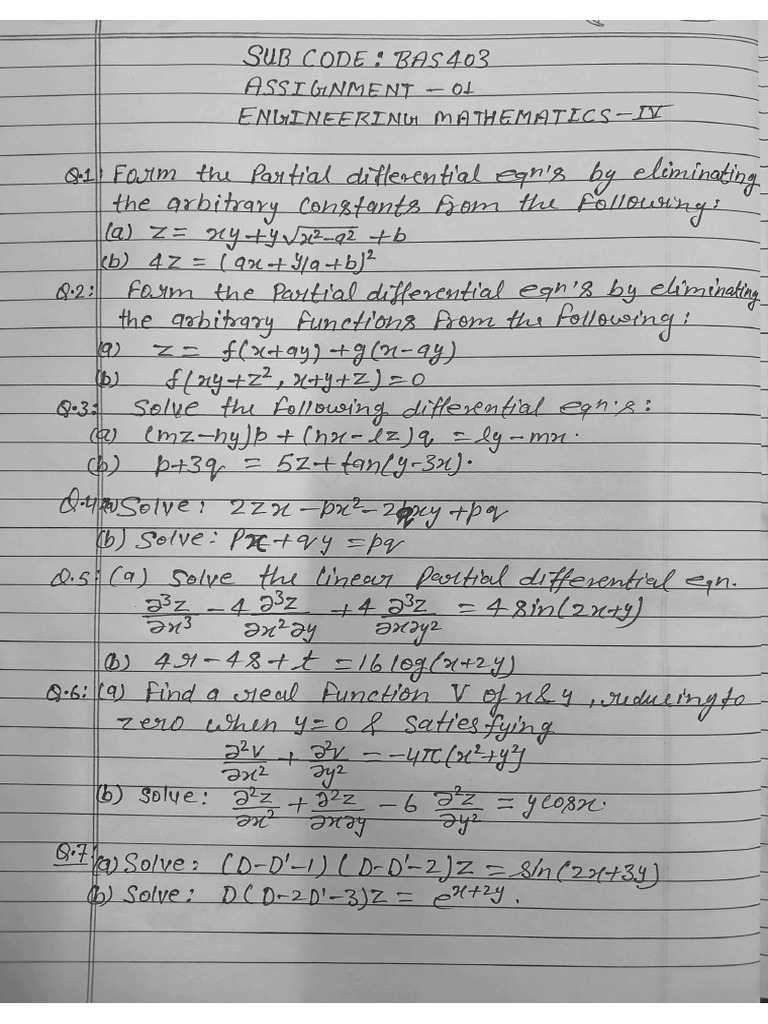 SUB CODE: BAS403
ASSIGNMENT - 01
ENGINEERING MATHEMATICS-IV
Q.1: Form the Partial differential eqn's by eliminating
the arbitrary constants from the following:
(a) z = xy+y√x²-a² +b
(b) 4z = (ax+y/a+b)²
Q.2: Form the Partial differential eqn's by eliminating
the arbitrary functions from the following:
(a) z = f(x+ay)+g(x-ay)
(b) f(xy+z², x+y+z)=0
Q.3: Solve the following differential eqn's:
(a) (mz-ny)p + (nx-lz)q = ly-mx.
(b) p+3q = 5z+tan(y-3x).
Q.4: (a) Solve: 2zx-px²-2qxy+pq
(b) Solve: Px+qy=pq
Q.5: (a) Solve the linear Partial differential eqn.
∂³z/∂x³ - 4 ∂³z/∂x²∂y + 4 ∂³z/∂x∂y² = 4 sin(2x+y)
(b) 4r-4s+t = 16 log(x+2y)
Q.6: (a) Find a real function V of x & y, reducing to
zero when y=0 & Satiesfying
∂²V/∂x² + ∂²V/∂y² = -4π(x²+y²)
(b) Solve: ∂²z/∂x² + ∂²z/∂x∂y - 6 ∂²z/∂y² = y cosx.
Q.7: (a) Solve: (D-D'-1)(D-D'-2)z = Sin(2x+3y)
(b) Solve: D(D-2D'-3)z = e^x+2y.